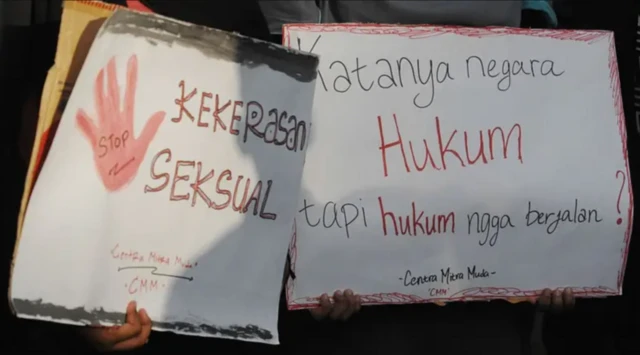 STOP
KEKERasan
SEKSUAL
Centra Mitra Muda
CMM
Katanya negara
Hukum
tapi hukum ngga berjalan ?
-Centra Mitra Muda-
"CMM"